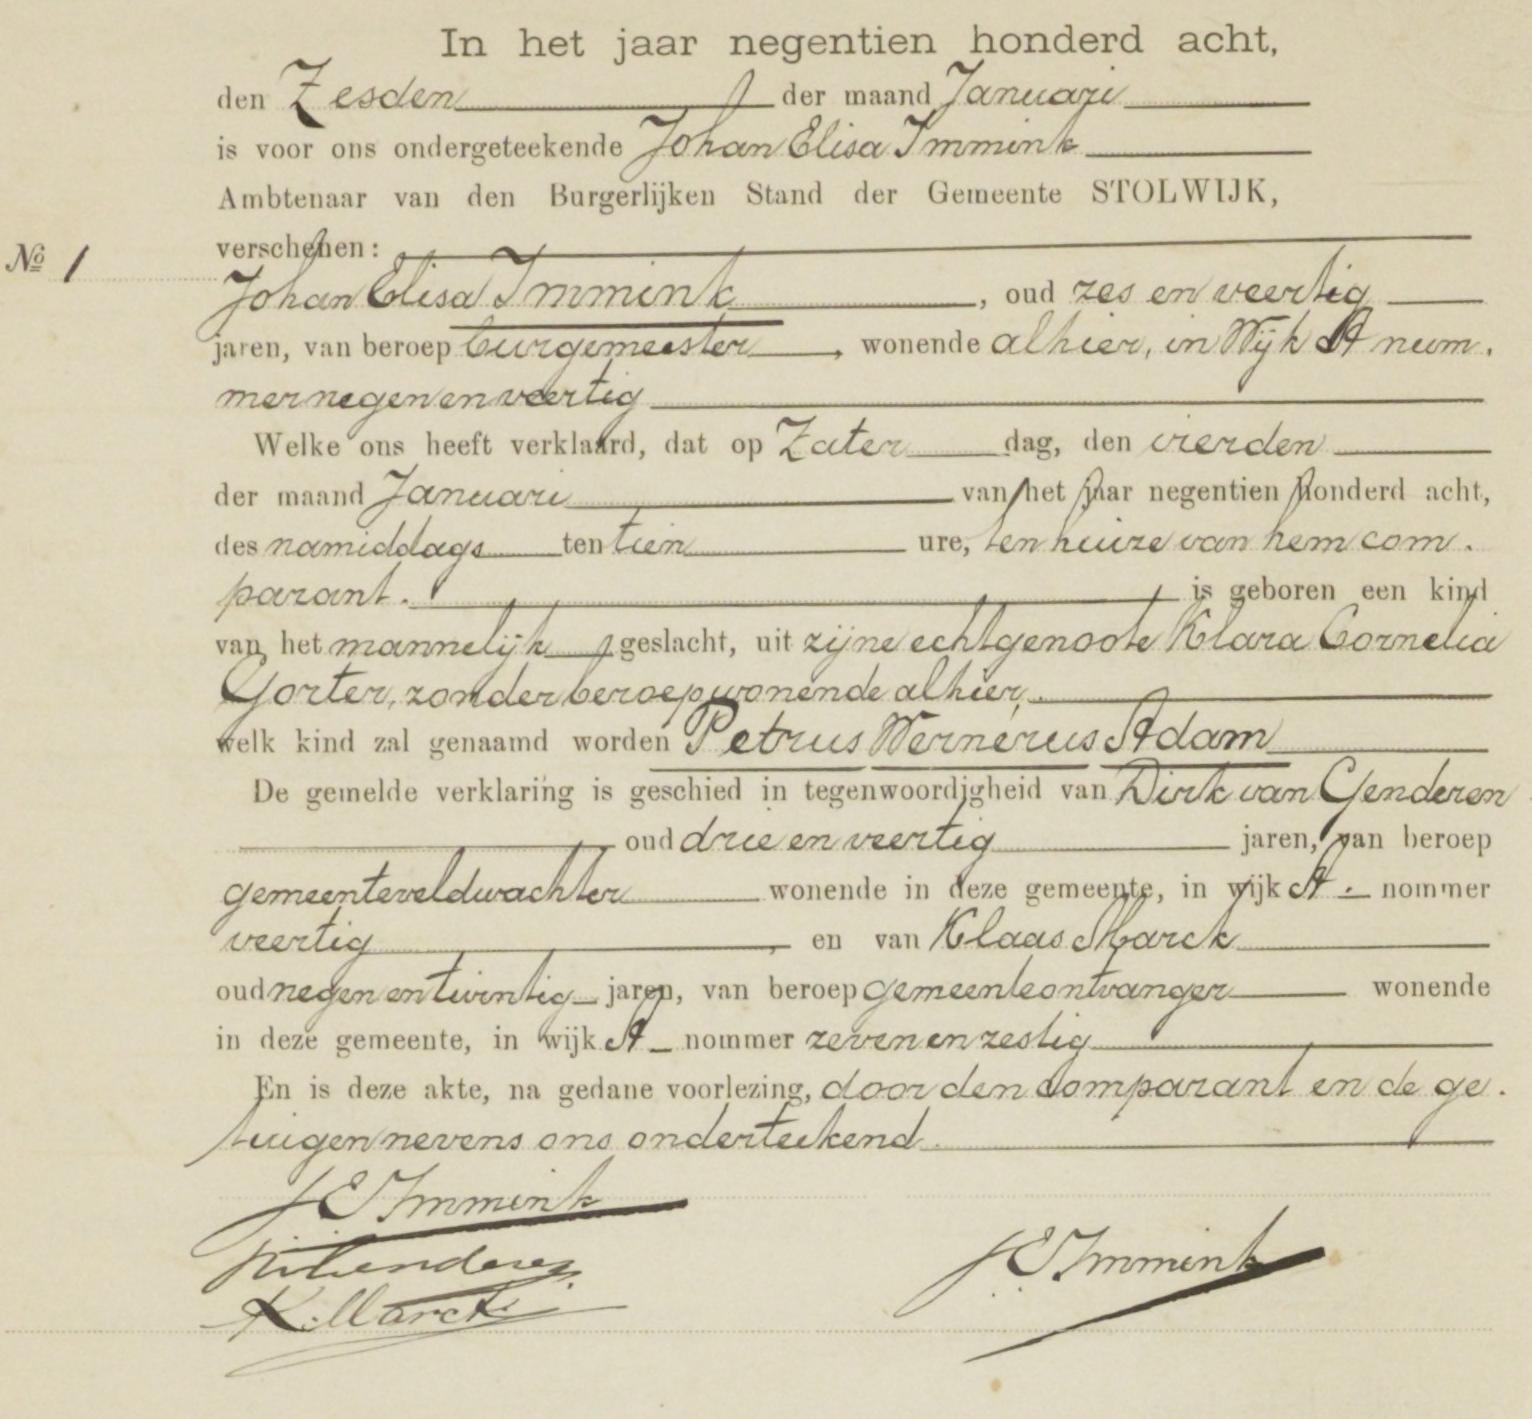 In het jaar negentien honderd acht,
den Zesden der maand Januari
is voor ons ondergeteekende Johan Elisa Immink
Ambtenaar van den Burgerlijken Stand der Gemeente STOLWIJK,
verschenen:
No 1
Johan Elisa Immink, oud zes en veertig
jaren, van beroep burgemeester, wonende alhier, in Wijk A num-
mer negen en veertig
Welke ons heeft verklaard, dat op Zaterdag, den vierden
der maand Januari van het jaar negentien honderd acht,
des namiddags ten tien ure, ten huize van hem com-
parant. is geboren een kind
van het mannelijk geslacht, uit zijne echtgenoote Klara Cornelia
Gorter, zonder beroep, wonende alhier,
welk kind zal genaamd worden Petrus Wernerus Adam
De gemelde verklaring is geschied in tegenwoordigheid van Dirk van Genderen
oud drie en veertig jaren, van beroep
gemeenteveldwachter wonende in deze gemeente, in wijk A. nommer
veertig, en van Klaas Marck
oud negen en twintig jaren, van beroep gemeenteontvanger wonende
in deze gemeente, in wijk A nommer zeven en zestig
En is deze akte, na gedane voorlezing, door den comparant en de ge-
tuigen nevens ons onderteekend.
J E Immink
J E Immink
K. Marck